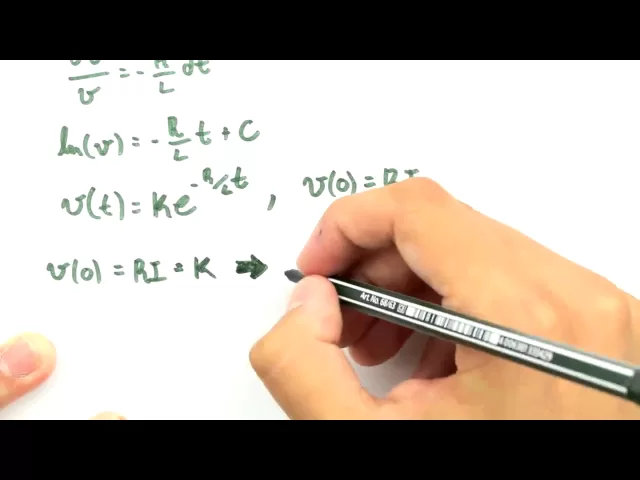 dv/v = - R/L dt
ln(v) = - R/L t + C
v(t) = Ke^(-R/L t) , v(0) = RI
v(0) = RI = K ⇒
Art. No. 68/63